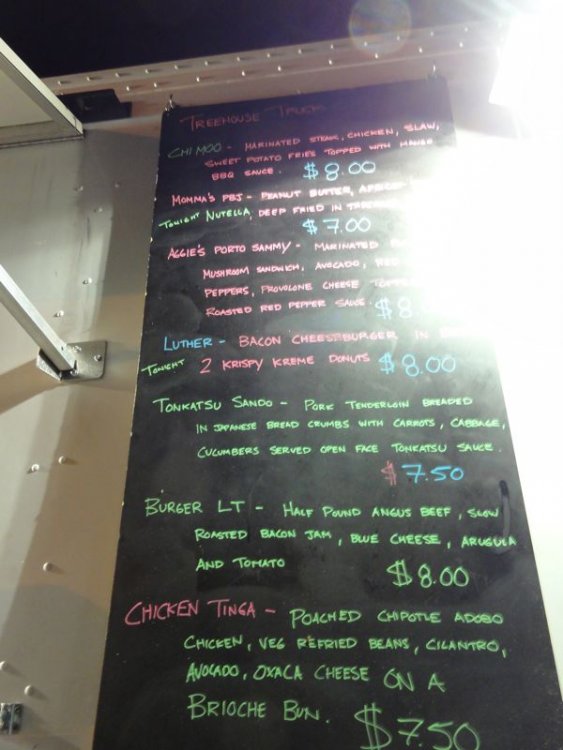 TREEHOUSE TRUCK
CHI MOO - MARINATED STEAK, CHICKEN, SLAW,
SWEET POTATO FRIES TOPPED WITH MANGO
BBQ SAUCE. $8.00
MOMMA'S PBJ - PEANUT BUTTER, APRICOT
TONIGHT NUTELLA DEEP FRIED IN
$7.00
AGGIE'S PORTO SAMMY - MARINATED
MUSHROOM SANDWICH, AVOCADO, RED
PEPPERS, PROVOLONE CHEESE TOPPED
ROASTED RED PEPPER SAUCE. $8
LUTHER - BACON CHEESEBURGER IN
TONIGHT 2 KRISPY KREME DONUTS $8.00
TONKATSU SANDO - PORK TENDERLOIN BREADED
IN JAPANESE BREAD CRUMBS WITH CARROTS, CABBAGE,
CUCUMBERS SERVED OPEN FACE TONKATSU SAUCE.
$7.50
BURGER LT - HALF POUND ANGUS BEEF, SLOW
ROASTED BACON JAM, BLUE CHEESE, ARUGULA
AND TOMATO $8.00
CHICKEN TINGA - POACHED CHIPOTLE ADOBO
CHICKEN, VEG REFRIED BEANS, CILANTRO,
AVOCADO, OXACA CHEESE ON A
BRIOCHE BUN. $7.50